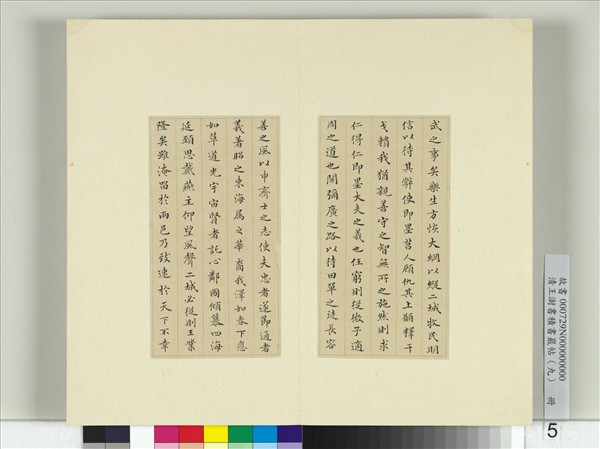 武之事矣樂生方恢大綱以縱二城牧民明
信以待其弊使即墨莒人顧仇其上願釋干
戈賴我猶親善守之智無所之施然則求
仁得仁即墨大夫之義也任窮則從微子適
周之道也開彌廣之路以待田單之徒長容
善之風以申齊士之志使夫忠者遂節通者
義著昭之東海屬之華裔我澤如春下應
如草道光宇宙賢者託心鄰國傾慕四海
延頸思戴燕主仰望風聲二城必從則王業
隆矣雖淹留於兩邑乃致速於天下不幸
故書 000729N000000000
清王澍書積書巖帖（九） 冊
5